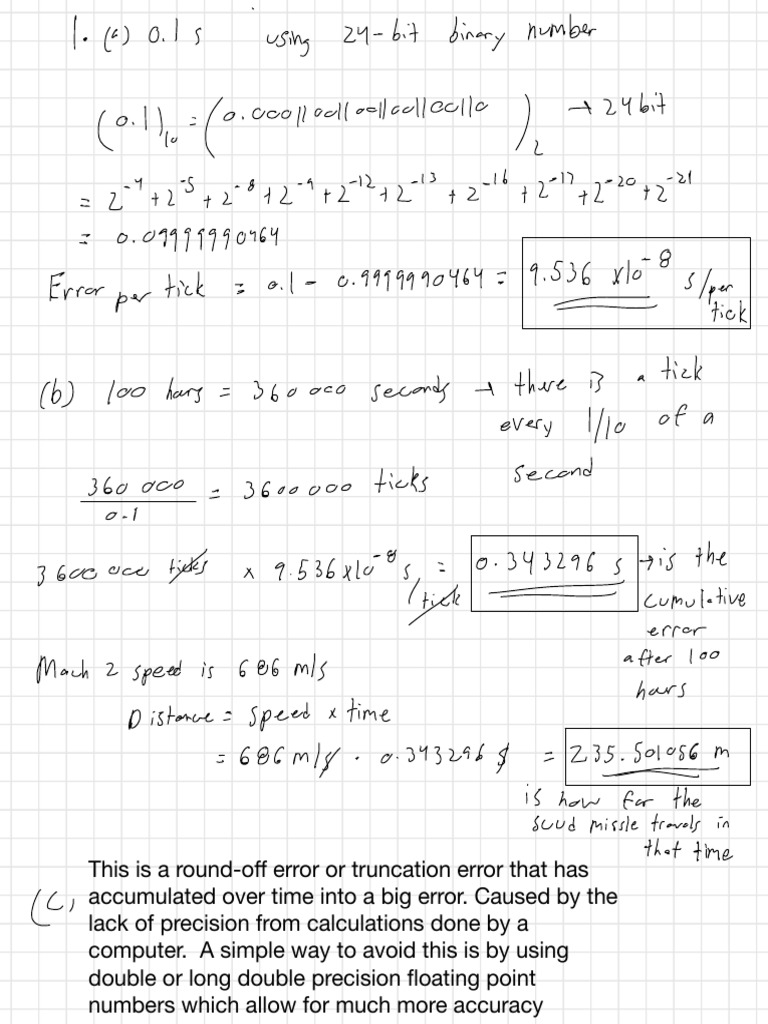 1. (a) 0.1 s using 24-bit binary number
(0.1)10 = (0.00011001100110011001100)2 → 24 bit
= 2^-4 + 2^-5 + 2^-8 + 2^-9 + 2^-12 + 2^-13 + 2^-16 + 2^-17 + 2^-20 + 2^-21
= 0.09999990464
Error per tick = 0.1 - 0.9999990464 = 9.536 x10^-8 s/per tick
(b) 100 hours = 360 000 seconds → there is a tick
every 1/10 of a
second
360 000 / 0.1 = 3600 000 ticks
3 600 000 ticks x 9.536x10^-8 s/tick = 0.343296 s → is the
cumulative
error
after 100
hours
Mach 2 speed is 686 m/s
Distance = speed x time
= 686 m/s · 0.343296 s = 235.501056 m
is how far the
scud missle travels in
that time
(c) This is a round-off error or truncation error that has
accumulated over time into a big error. Caused by the
lack of precision from calculations done by a
computer. A simple way to avoid this is by using
double or long double precision floating point
numbers which allow for much more accuracy